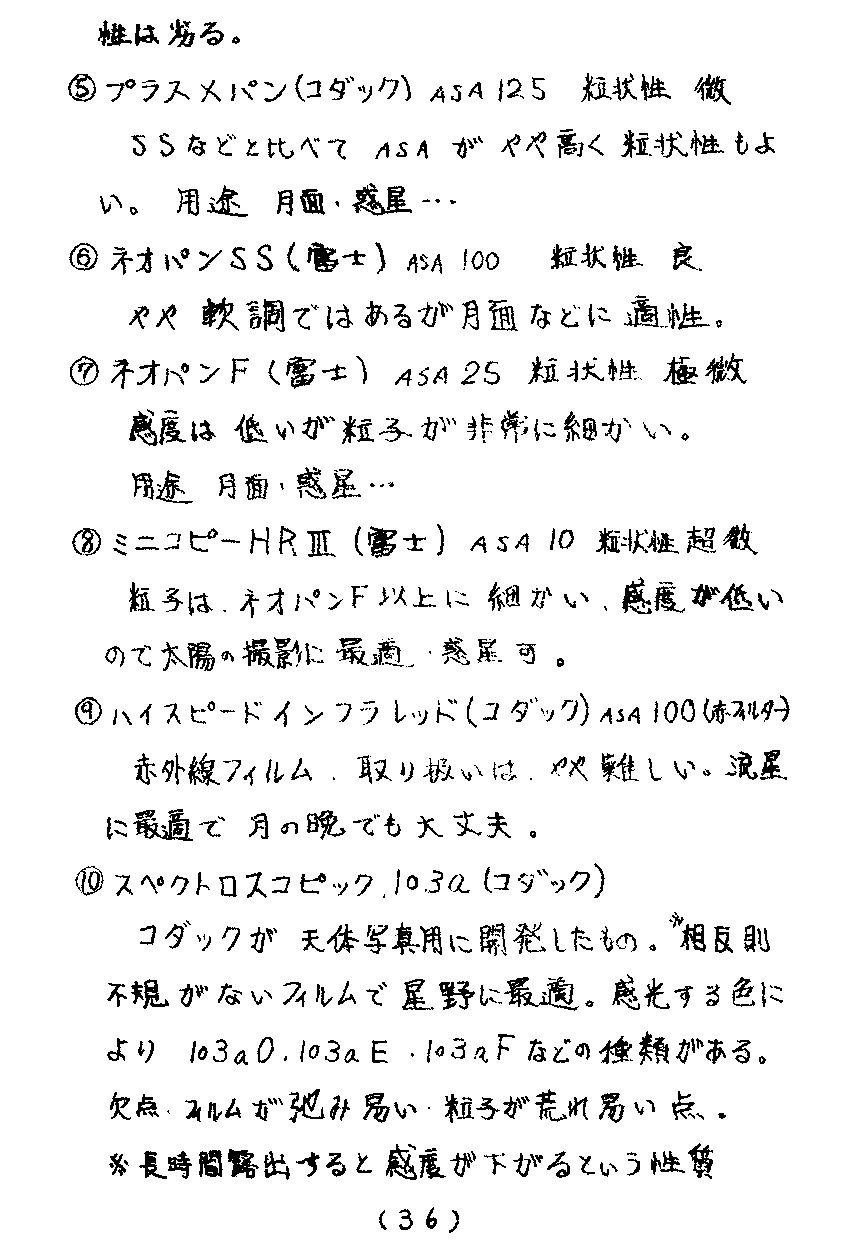 性は劣る。
⑤プラスXパン(コダック) ASA 125 粒状性 微
SSなどと比べて ASA がやや高く粒状性もよ
い。 用途 月面・惑星…
⑥ネオパンSS(富士) ASA 100 粒状性 良
やや軟調ではあるが月面などに適性。
⑦ネオパンF(富士) ASA 25 粒状性 極微
感度は低いが粒子が非常に細かい。
用途 月面・惑星…
⑧ミニコピーHRⅢ(富士) ASA 10 粒状性 超微
粒子は、ネオパンF以上に細かい、感度が低い
ので太陽の撮影に最適、惑星可。
⑨ハイスピードインフラレッド(コダック) ASA 100(赤フィルター)
赤外線フィルム、取り扱いは、やや難しい。流星
に最適で月の晩でも大丈夫。
⑩スペクトロスコピック、103a(コダック)
コダックが天体写真用に開発したもの。※相反則
不規がないフィルムで星野に最適。感光する色に
より 103aO、103aE、103aFなどの種類がある。
欠点、フィルムが弛み易い、粒子が荒れ易い点。
※長時間露出すると感度が下がるという性質
(36)